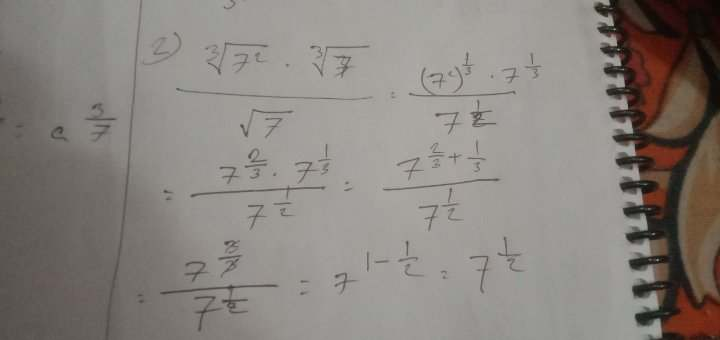 2) ∛7² · ∛7 / √7 = (7²)^(1/3) · 7^(1/3) / 7^(1/2)
= a^(3/7)
= 7^(2/3) · 7^(1/3) / 7^(1/2) = 7^(2/3 + 1/3) / 7^(1/2)
= 7^(3/3) / 7^(1/2) = 7^(1 - 1/2) = 7^(1/2)